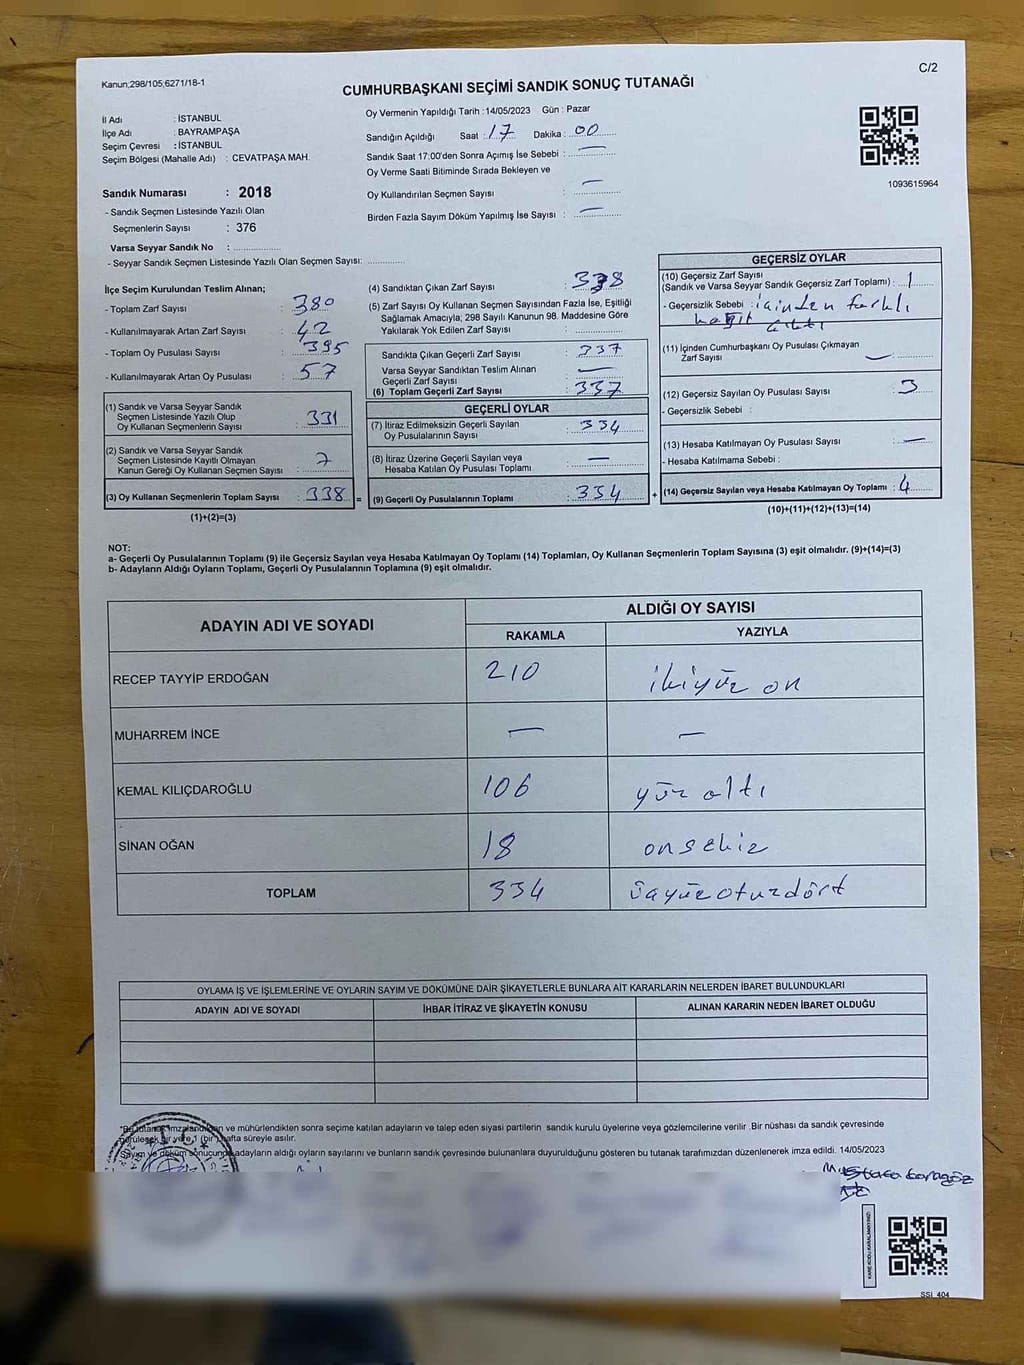 Kanun;298/105;6271/18-1
C/2
CUMHURBAŞKANI SEÇİMİ SANDIK SONUÇ TUTANAĞI
İl Adı : İSTANBUL
İlçe Adı : BAYRAMPAŞA
Seçim Çevresi : İSTANBUL
Seçim Bölgesi (Mahalle Adı) : CEVATPAŞA MAH.
Sandık Numarası : 2018
- Sandık Seçmen Listesinde Yazılı Olan
Seçmenlerin Sayısı : 376
Varsa Seyyar Sandık No :
- Seyyar Sandık Seçmen Listesinde Yazılı Olan Seçmen Sayısı:
Oy Vermenin Yapıldığı Tarih : 14/05/2023 Gün : Pazar
Sandığın Açıldığı Saat : 17 Dakika : 00
Sandık Saat 17:00'den Sonra Açımış İse Sebebi : —
Oy Verme Saati Bitiminde Sırada Bekleyen ve
Oy Kullandırılan Seçmen Sayısı : —
Birden Fazla Sayım Döküm Yapılmış İse Sayısı : —
1093615964
İlçe Seçim Kurulundan Teslim Alınan;
- Toplam Zarf Sayısı : 380
- Kullanılmayarak Artan Zarf Sayısı : 42
- Toplam Oy Pusulası Sayısı : 395
- Kullanılmayarak Artan Oy Pusulası : 57
(1) Sandık ve Varsa Seyyar Sandık
Seçmen Listesinde Yazılı Olup
Oy Kullanan Seçmenlerin Sayısı : 331
(2) Sandık ve Varsa Seyyar Sandık
Seçmen Listesinde Kayıtlı Olmayan
Kanun Gereği Oy Kullanan Seçmen Sayısı : 7
(3) Oy Kullanan Seçmenlerin Toplam Sayısı : 338 =
(1)+(2)=(3)
(4) Sandıktan Çıkan Zarf Sayısı : 338
(5) Zarf Sayısı Oy Kullanan Seçmen Sayısından Fazla İse, Eşitliği
Sağlamak Amacıyla; 298 Sayılı Kanunun 98. Maddesine Göre
Yakılarak Yok Edilen Zarf Sayısı :
Sandıkta Çıkan Geçerli Zarf Sayısı : 337
Varsa Seyyar Sandıktan Teslim Alınan
Geçerli Zarf Sayısı : —
(6) Toplam Geçerli Zarf Sayısı : 337
GEÇERLİ OYLAR
(7) İtiraz Edilmeksizin Geçerli Sayılan
Oy Pusulalarının Sayısı : 334
(8) İtiraz Üzerine Geçerli Sayılan veya
Hesaba Katılan Oy Pusulası Toplamı : —
(9) Geçerli Oy Pusulalarının Toplamı : 334 +
GEÇERSİZ OYLAR
(10) Geçersiz Zarf Sayısı
(Sandık ve Varsa Seyyar Sandık Geçersiz Zarf Toplamı) : 1
- Geçersizlik Sebebi : içinden farklı
kağıt çıktı
(11) İçinden Cumhurbaşkanı Oy Pusulası Çıkmayan
Zarf Sayısı : —
(12) Geçersiz Sayılan Oy Pusulası Sayısı : 3
- Geçersizlik Sebebi :
(13) Hesaba Katılmayan Oy Pusulası Sayısı : —
- Hesaba Katılmama Sebebi :
(14) Geçersiz Sayılan veya Hesaba Katılmayan Oy Toplamı : 4
(10)+(11)+(12)+(13)=(14)
NOT:
a- Geçerli Oy Pusulalarının Toplamı (9) ile Geçersiz Sayılan veya Hesaba Katılmayan Oy Toplamı (14) Toplamları, Oy Kullanan Seçmenlerin Toplam Sayısına (3) eşit olmalıdır. (9)+(14)=(3)
b- Adayların Aldığı Oyların Toplamı, Geçerli Oy Pusulalarının Toplamına (9) eşit olmalıdır.
ADAYIN ADI VE SOYADI ALDIĞI OY SAYISI
RAKAMLA YAZIYLA
RECEP TAYYİP ERDOĞAN 210 ikiyüz on
MUHARREM İNCE — —
KEMAL KILIÇDAROĞLU 106 yüz altı
SİNAN OĞAN 18 onsekiz
TOPLAM 334 üçyüzotuzdört
OYLAMA İŞ VE İŞLEMLERİNE VE OYLARIN SAYIM VE DÖKÜMÜNE DAİR ŞİKAYETLERLE BUNLARA AİT KARARLARIN NELERDEN İBARET BULUNDUKLARI
ADAYIN ADI VE SOYADI İHBAR İTİRAZ VE ŞİKAYETİN KONUSU ALINAN KARARIN NEDEN İBARET OLDUĞU
*Bu tutanak imzalandıktan ve mühürlendikten sonra seçime katılan adayların ve talep eden siyasi partilerin sandık kurulu üyelerine veya gözlemcilerine verilir .Bir nüshası da sandık çevresinde
görülecek bir yere 1 (bir) hafta süreyle asılır.
Sayım ve döküm sonucunda adayların aldığı oyların sayılarını ve bunların sandık çevresinde bulunanlara duyurulduğunu gösteren bu tutanak tarafımızdan düzenlenerek imza edildi. 14/05/2023
Mustafa karagöz
KARE KODU KARALAMAYINIZ!
SSİ_404